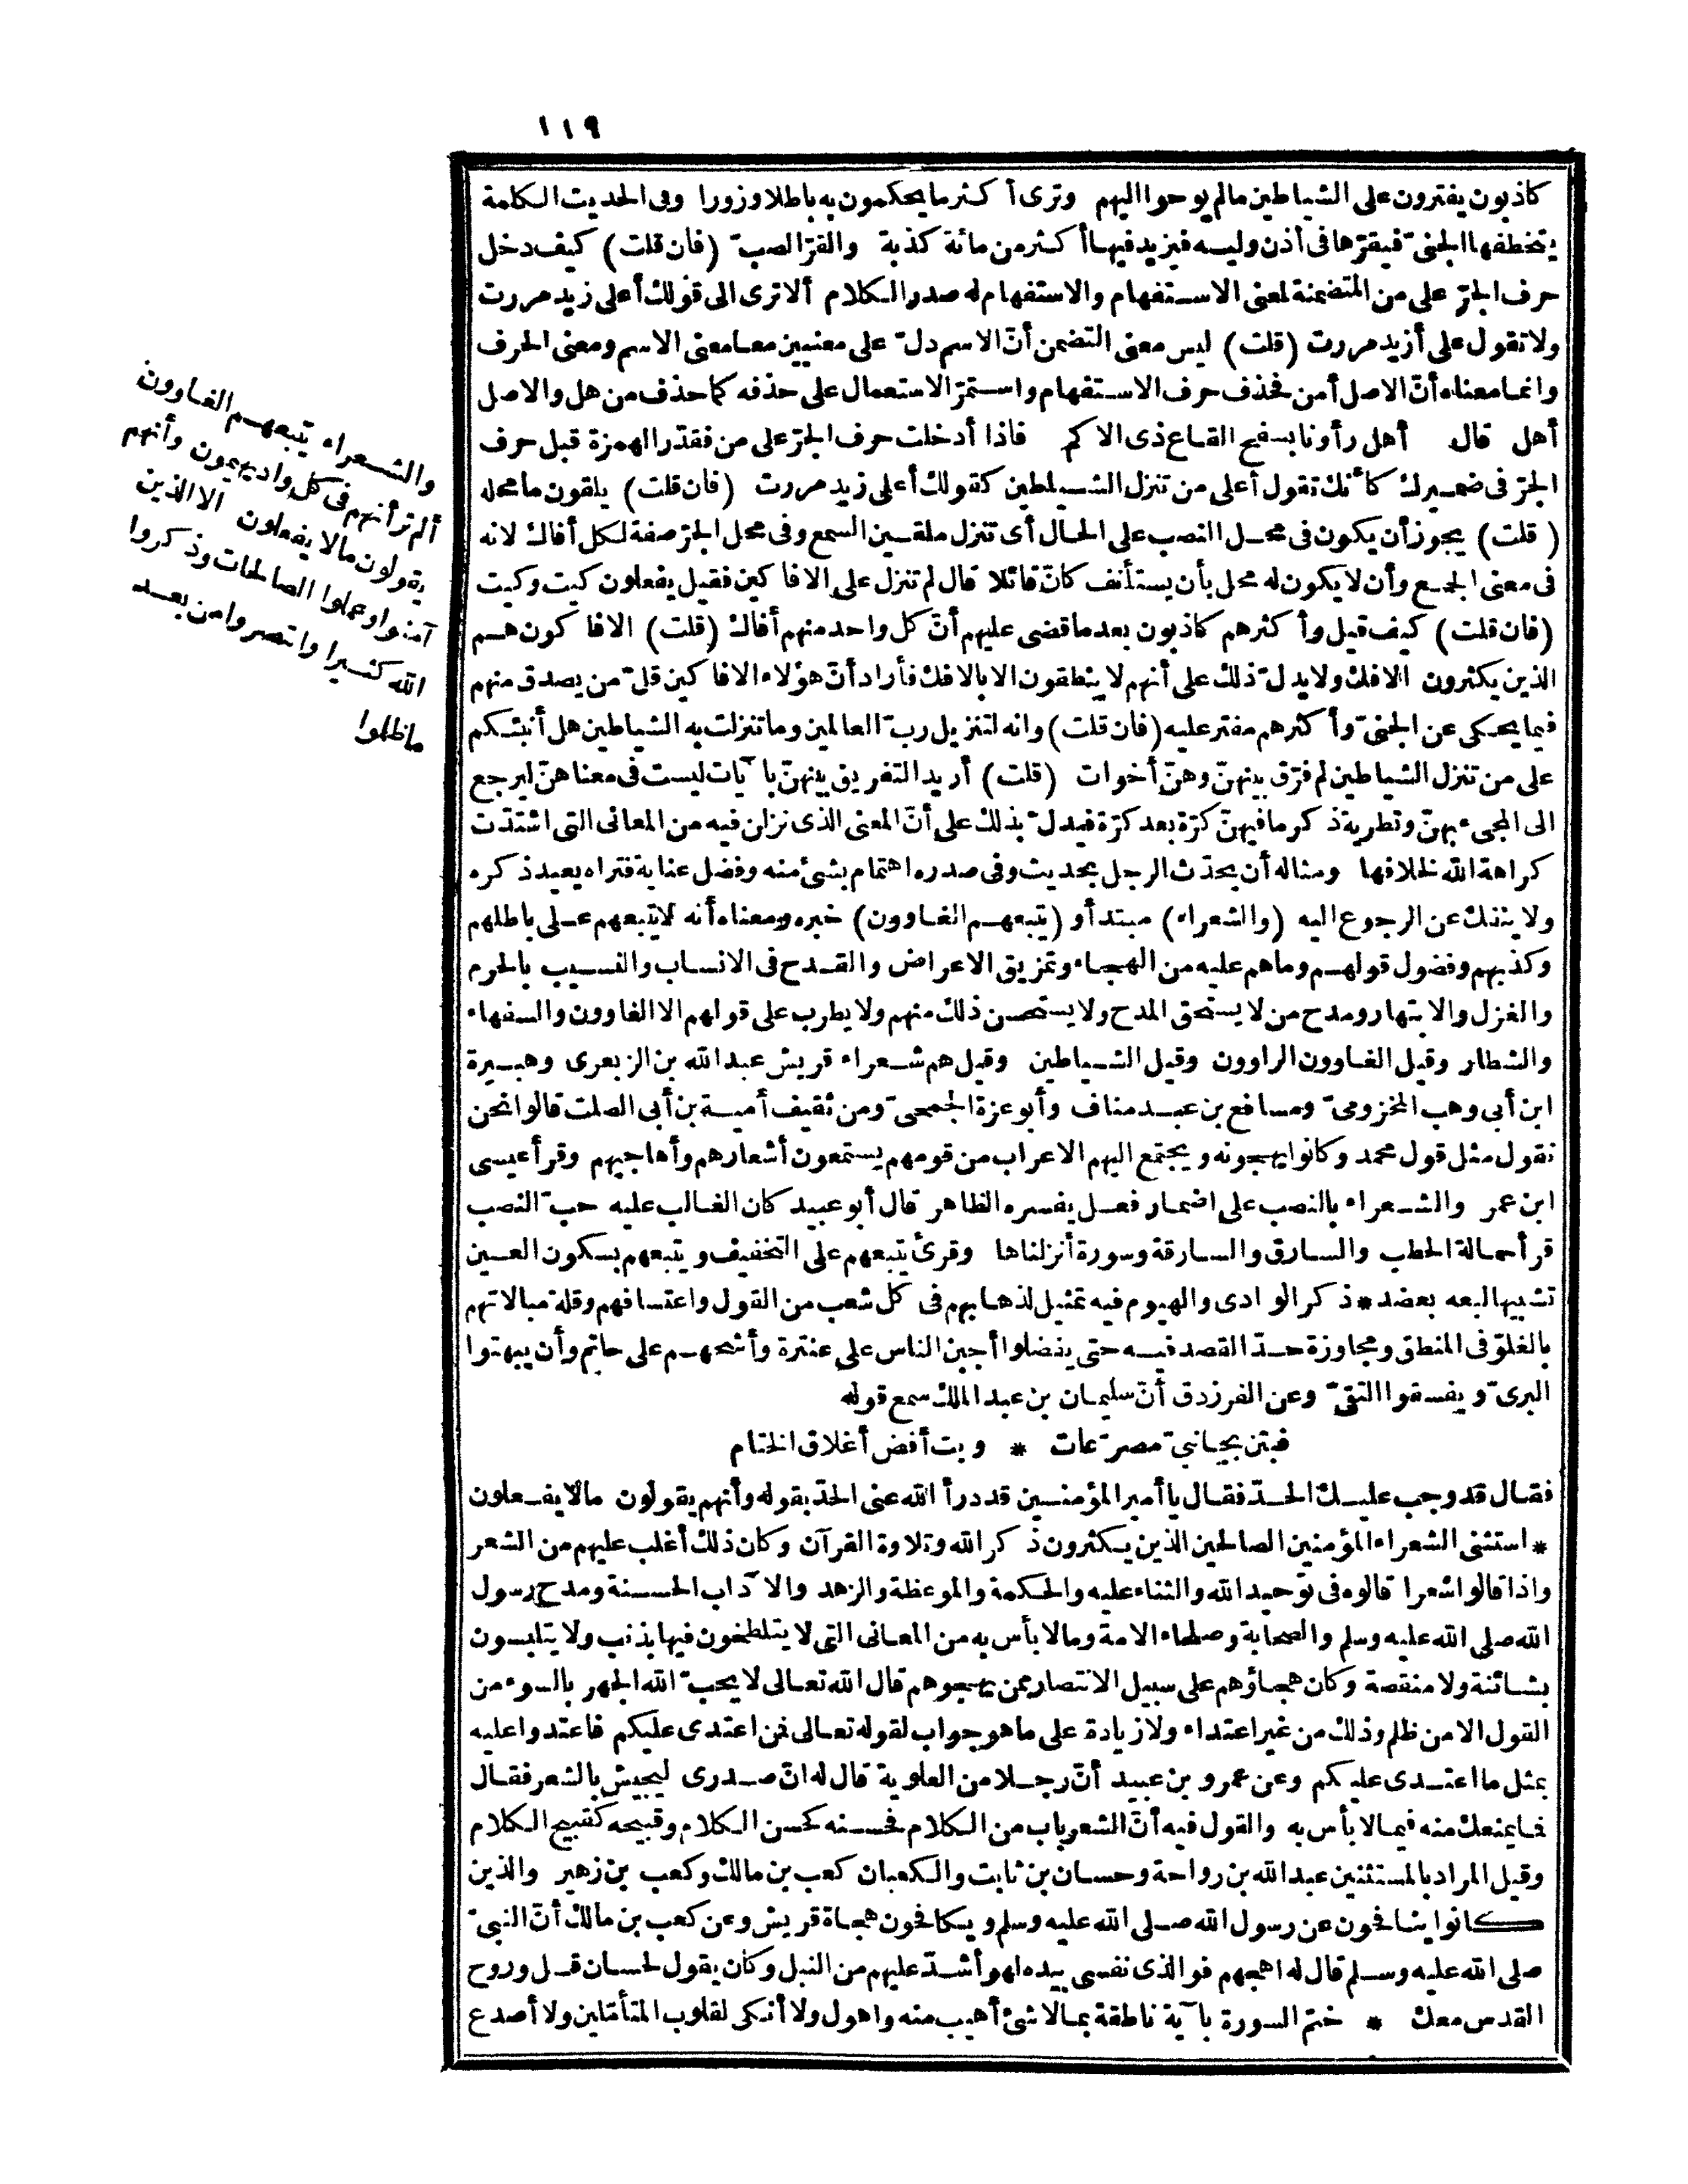 ١١٩
كاذبون يفترون على الشياطين ما لم يوحوا اليهم وترى أكثر ما يحكمون به باطلا وزورا وفى الحديث الكلمة
يتخطفها الجنىّ فيقرّها فى أذن وليه فيزيد فيها أكثر من مائة كذبة والقرّ الصبّ (فان قلت) كيف دخل
حرف الجرّ على من المتضمنة لمعنى الاستفهام والاستفهام له صدر الكلام ألا ترى الى قولك أعلى زيد مررت
ولا تقول على أزيد مررت (قلت) ليس معنى التضمن أنّ الاسم دلّ على معنيين معا معنى الاسم ومعنى الحرف
وانما معناه أنّ الاصل أمن فحذف حرف الاستفهام واستمرّ الاستعمال على حذفه كما حذف من هل والاصل
أهل قال أهل رأونا بسفح القاع ذى الاكم فاذا أدخلت حرف الجرّ على من فقدّر الهمزة قبل حرف
الجرّ فى ضميرك كأنك تقول أعلى من تنزل الشيطين كقولك أعلى زيد مررت (فان قلت) يلقون ما محله
(قلت) يجوز أن يكون فى محل النصب على الحال أى تنزل ملقين السمع وفى محل الجرّ صفة لكل أفاك لانه
فى معنى الجمع وأن لا يكون له محل بأن يستأنف كانّ قائلا قال لم تنزل على الافاكين فقيل يفعلون كيت وكيت
(فان قلت) كيف قيل وأكثرهم كاذبون بعد ما قضى عليهم أنّ كل واحد منهم أفاك (قلت) الافاكون هم
الذين يكثرون الافك ولا يدلّ ذلك على أنهم لا ينطقون الا بالافك فأراد أنّ هؤلاء الافاكين قلّ من يصدق منهم
فيما يحكى عن الجنىّ وأكثرهم مفتر عليه (فان قلت) وانه لتنزيل ربّ العالمين وما تنزلت به الشياطين هل أنبئكم
على من تنزل الشياطين لم فرّق بينهنّ وهنّ أخوات (قلت) أريد التفريق بينهنّ بآيات ليست فى معناهنّ ليرجع
الى المجىء بهنّ وتطرية ذكر ما فيهنّ كرّة بعد كرّة فيدلّ بذلك على أنّ المعنى الذى نزلن فيه من المعانى التى اشتدّت
كراهة الله لخلافها ومثاله أن يحدّث الرجل بحديث وفى صدره اهتمام بشئ منه وفضل عناية فتراه يعيد ذكره
ولا ينفك عن الرجوع اليه (والشعراء) مبتدأ و (يتبعهم الغاوون) خبره ومعناه أنه لا يتبعهم على باطلهم
وكذبهم وفضول قولهم وما هم عليه من الهجاء وتمزيق الاعراض والقدح فى الانساب والنسيب بالحرم
والغزل والابتهار ومدح من لا يستحق المدح ولا يستحسن ذلك منهم ولا يطرب على قولهم الا الغاوون والسفهاء
والشطار وقيل الغاوون الراوون وقيل الشياطين وقيل هم شعراء قريش عبد الله بن الزبعرى وهبيرة
ابن أبى وهب المخزومىّ ومسافع بن عبد مناف وأبو عزة الجمحىّ ومن ثقيف أمية بن أبى الصلت قالوا نحن
نقول مثل قول محمد وكانوا يهجونه ويجتمع اليهم الاعراب من قومهم يستمعون أشعارهم وأهاجيهم وقرأ عيسى
ابن عمر والشعراء بالنصب على اضمار فعل يفسره الظاهر قال أبو عبيد كان الغالب عليه حبّ النصب
قرأ حمالة الحطب والسارق والسارقة وسورة أنزلناها وقرئ يتبعهم على التخفيف ويتبعهم بسكون العين
تشبيها لبعه بعضد * ذكر الوادى والهيوم فيه تمثيل لذهابهم فى كل شعب من القول واعتسافهم وقلة مبالاتهم
بالغلوّ فى المنطق ومجاوزة حدّ القصد فيه حتى يفضلوا أجبن الناس على عنترة وأشحهم على حاتم وأن يبهتوا
البرىّ ويفسقوا التقىّ وعن الفرزدق أنّ سليمان بن عبد الملك سمع قوله
فبتن بجانبىّ مصرّعات * وبت أفض أغلاق الختام
فقال قد وجب عليك الحدّ فقال يا أمير المؤمنين قد درأ الله عنى الحدّ بقوله وأنهم يقولون مالا يفعلون
* استثنى الشعراء المؤمنين الصالحين الذين يكثرون ذكر الله وتلاوة القرآن وكان ذلك أغلب عليهم من الشعر
واذا قالوا شعرا قالوه فى توحيد الله والثناء عليه والحكمة والموعظة والزهد والآداب الحسنة ومدح رسول
الله صلى الله عليه وسلم والصحابة وصلحاء الامة ومالا بأس به من المعانى التى لا يتلطخون فيها بذنب ولا يتلبسون
بشائنة ولا منقصة وكان هجاؤهم على سبيل الانتصار ممن يهجوهم قال الله تعالى لا يحبّ الله الجهر بالسوء من
القول الا من ظلم وذلك من غير اعتداء ولا زيادة على ما هو جواب لقوله تعالى فمن اعتدى عليكم فاعتدوا عليه
بمثل ما اعتدى عليكم وعن عمرو بن عبيد أنّ رجلا من العلوية قال له انّ صدرى ليجيش بالشعر فقال
فما يمنعك منه فيما لا بأس به والقول فيه أنّ الشعر باب من الكلام فحسنه كحسن الكلام وقبيحه كقبيح الكلام
وقيل المراد بالمستثنين عبد الله بن رواحة وحسان بن ثابت والكعبان كعب بن مالك وكعب بن زهير والذين
كانوا ينافحون عن رسول الله صلى الله عليه وسلم ويكافحون هجاة قريش وعن كعب بن مالك أنّ النبىّ
صلى الله عليه وسلم قال له اهجهم فو الذى نفسى بيده لهو أشدّ عليهم من النبل وكان يقول لحسان قل وروح
القدس معك * ختم السورة بآية ناطقة بما لا شئ أهيب منه واهول ولا أنكى لقلوب المتأمّلين ولا أصدع
والشعراء يتبعهم الغاوون
ألم تر أنهم فى كل واد يهيمون وأنهم
يقولون مالا يفعلون الا الذين
آمنوا وعملوا الصالحات وذكروا
الله كثيرا وانتصروا من بعد
ما ظلموا